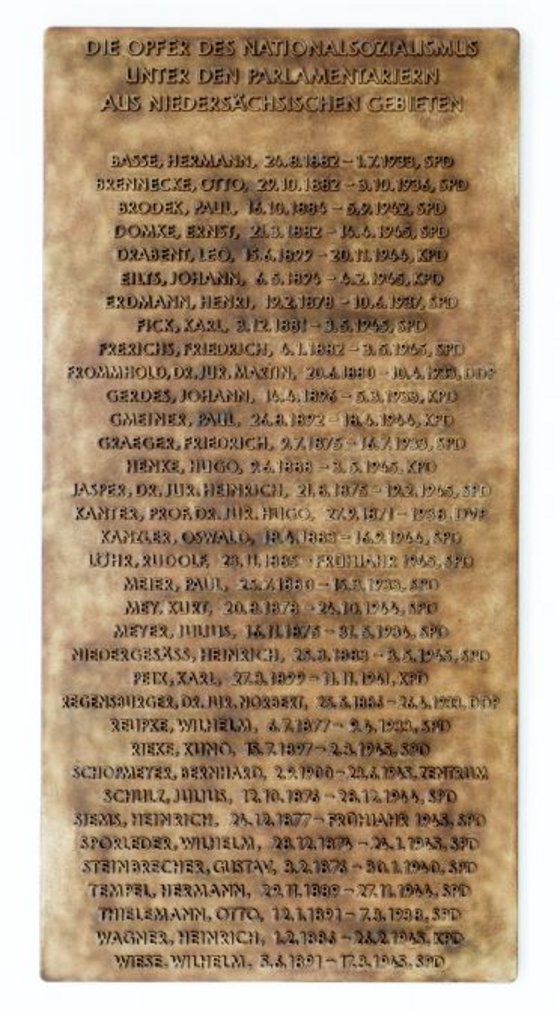 DIE OPFER DES NATIONALSOZIALISMUS
UNTER DEN PARLAMENTARIERN
AUS NIEDERSÄCHSISCHEN GEBIETEN
BASSE, HERMANN, 24.8.1882 – 1.7.1933, SPD
BRENNECKE, OTTO, 29.10.1882 – 3.10.1936, SPD
BRODEK, PAUL, 16.10.1884 – 5.9.1942, SPD
DOMKE, ERNST, 21.3.1882 – 14.4.1945, SPD
DRABENT, LEO, 15.6.1899 – 20.11.1944, KPD
EILTS, JOHANN, 6.5.1894 – 4.2.1945, KPD
ERDMANN, HENRI, 19.2.1878 – 10.6.1937, SPD
FICK, KARL, 3.12.1881 – 3.5.1945, SPD
FRERICHS, FRIEDRICH, 4.1.1882 – 3.5.1945, SPD
FROMMHOLD, DR. JUR. MARTIN, 20.4.1880 – 10.4.1933, DDP
GERDES, JOHANN, 14.4.1896 – 5.3.1933, KPD
GMEINER, PAUL, 26.8.1892 – 18.4.1944, KPD
GRAEGER, FRIEDRICH, 9.7.1875 – 16.7.1933, SPD
HENKE, HUGO, 9.6.1888 – 3.5.1945, KPD
JASPER, DR. JUR. HEINRICH, 21.8.1875 – 19.2.1945, SPD
KANTER, PROF. DR. JUR. HUGO, 27.9.1871 – 1938, DVP
KANZLER, OSWALD, 18.4.1883 – 16.9.1944, SPD
LÜHR, RUDOLF, 23.11.1885 – FRÜHJAHR 1945, SPD
MEIER, PAUL, 25.7.1880 – 15.3.1933, SPD
MEY, KURT, 20.8.1878 – 24.10.1944, SPD
MEYER, JULIUS, 16.11.1875 – 31.5.1934, SPD
NIEDERGESÄSS, HEINRICH, 25.3.1883 – 3.5.1945, SPD
PEIX, KARL, 27.3.1899 – 11.11.1941, KPD
REGENSBURGER, DR. JUR. NORBERT, 25.5.1886 – 26.4.1933, DDP
REUPKE, WILHELM, 6.7.1877 – 9.4.1933, SPD
RIEKE, KUNO, 15.7.1897 – 2.3.1945, SPD
SCHOPMEYER, BERNHARD, 2.9.1900 – 23.6.1945, ZENTRUM
SCHULZ, JULIUS, 12.10.1876 – 28.12.1944, SPD
SIEMS, HEINRICH, 24.12.1877 – FRÜHJAHR 1945, SPD
SPORLEDER, WILHELM, 28.12.1874 – 24.1.1945, SPD
STEINBRECHER, GUSTAV, 3.2.1876 – 30.1.1940, SPD
TEMPEL, HERMANN, 29.11.1889 – 27.11.1944, SPD
THIELEMANN, OTTO, 12.1.1891 – 7.3.1938, SPD
WAGNER, HEINRICH, 1.2.1886 – 26.2.1945, KPD
WIESE, WILHELM, 5.6.1891 – 17.3.1945, SPD